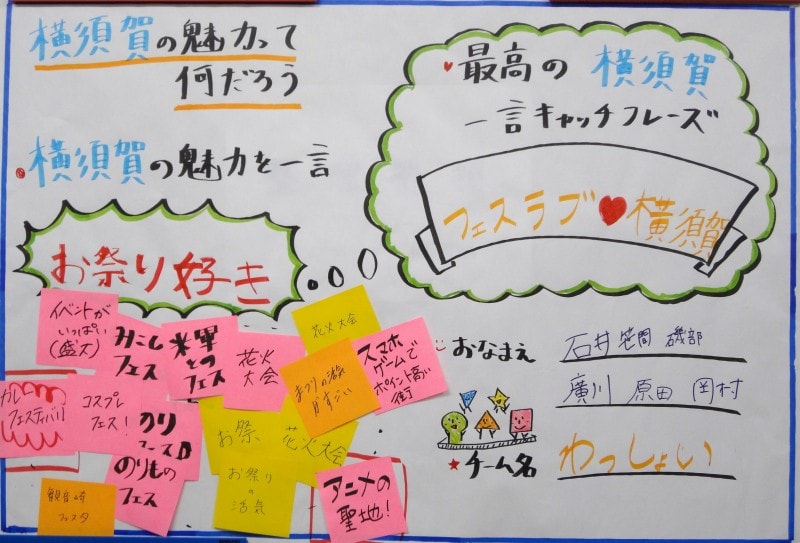 横須賀の魅力って
何だろう
横須賀の魅力を一言
お祭り好き
最高の 横須賀
一言キャッチフレーズ
フェスラブ♥横須賀
イベントが
いっぱい
(盛大)
みこし
フェス
米軍
との
フェス
花火
大会
花火大会
まつりの激
がすごい
スマホ
ゲームで
ポイント高い
街
カレー
フェスティバル
コスプレ
フェス!
のり
フェス
のりもの
フェス
お祭 花火大会
お祭り
の
活気
観音崎
フェスタ
アニメの
聖地!
おなまえ
石井 笹間 磯部
廣川 原田 岡村
★チーム名
わっしょい